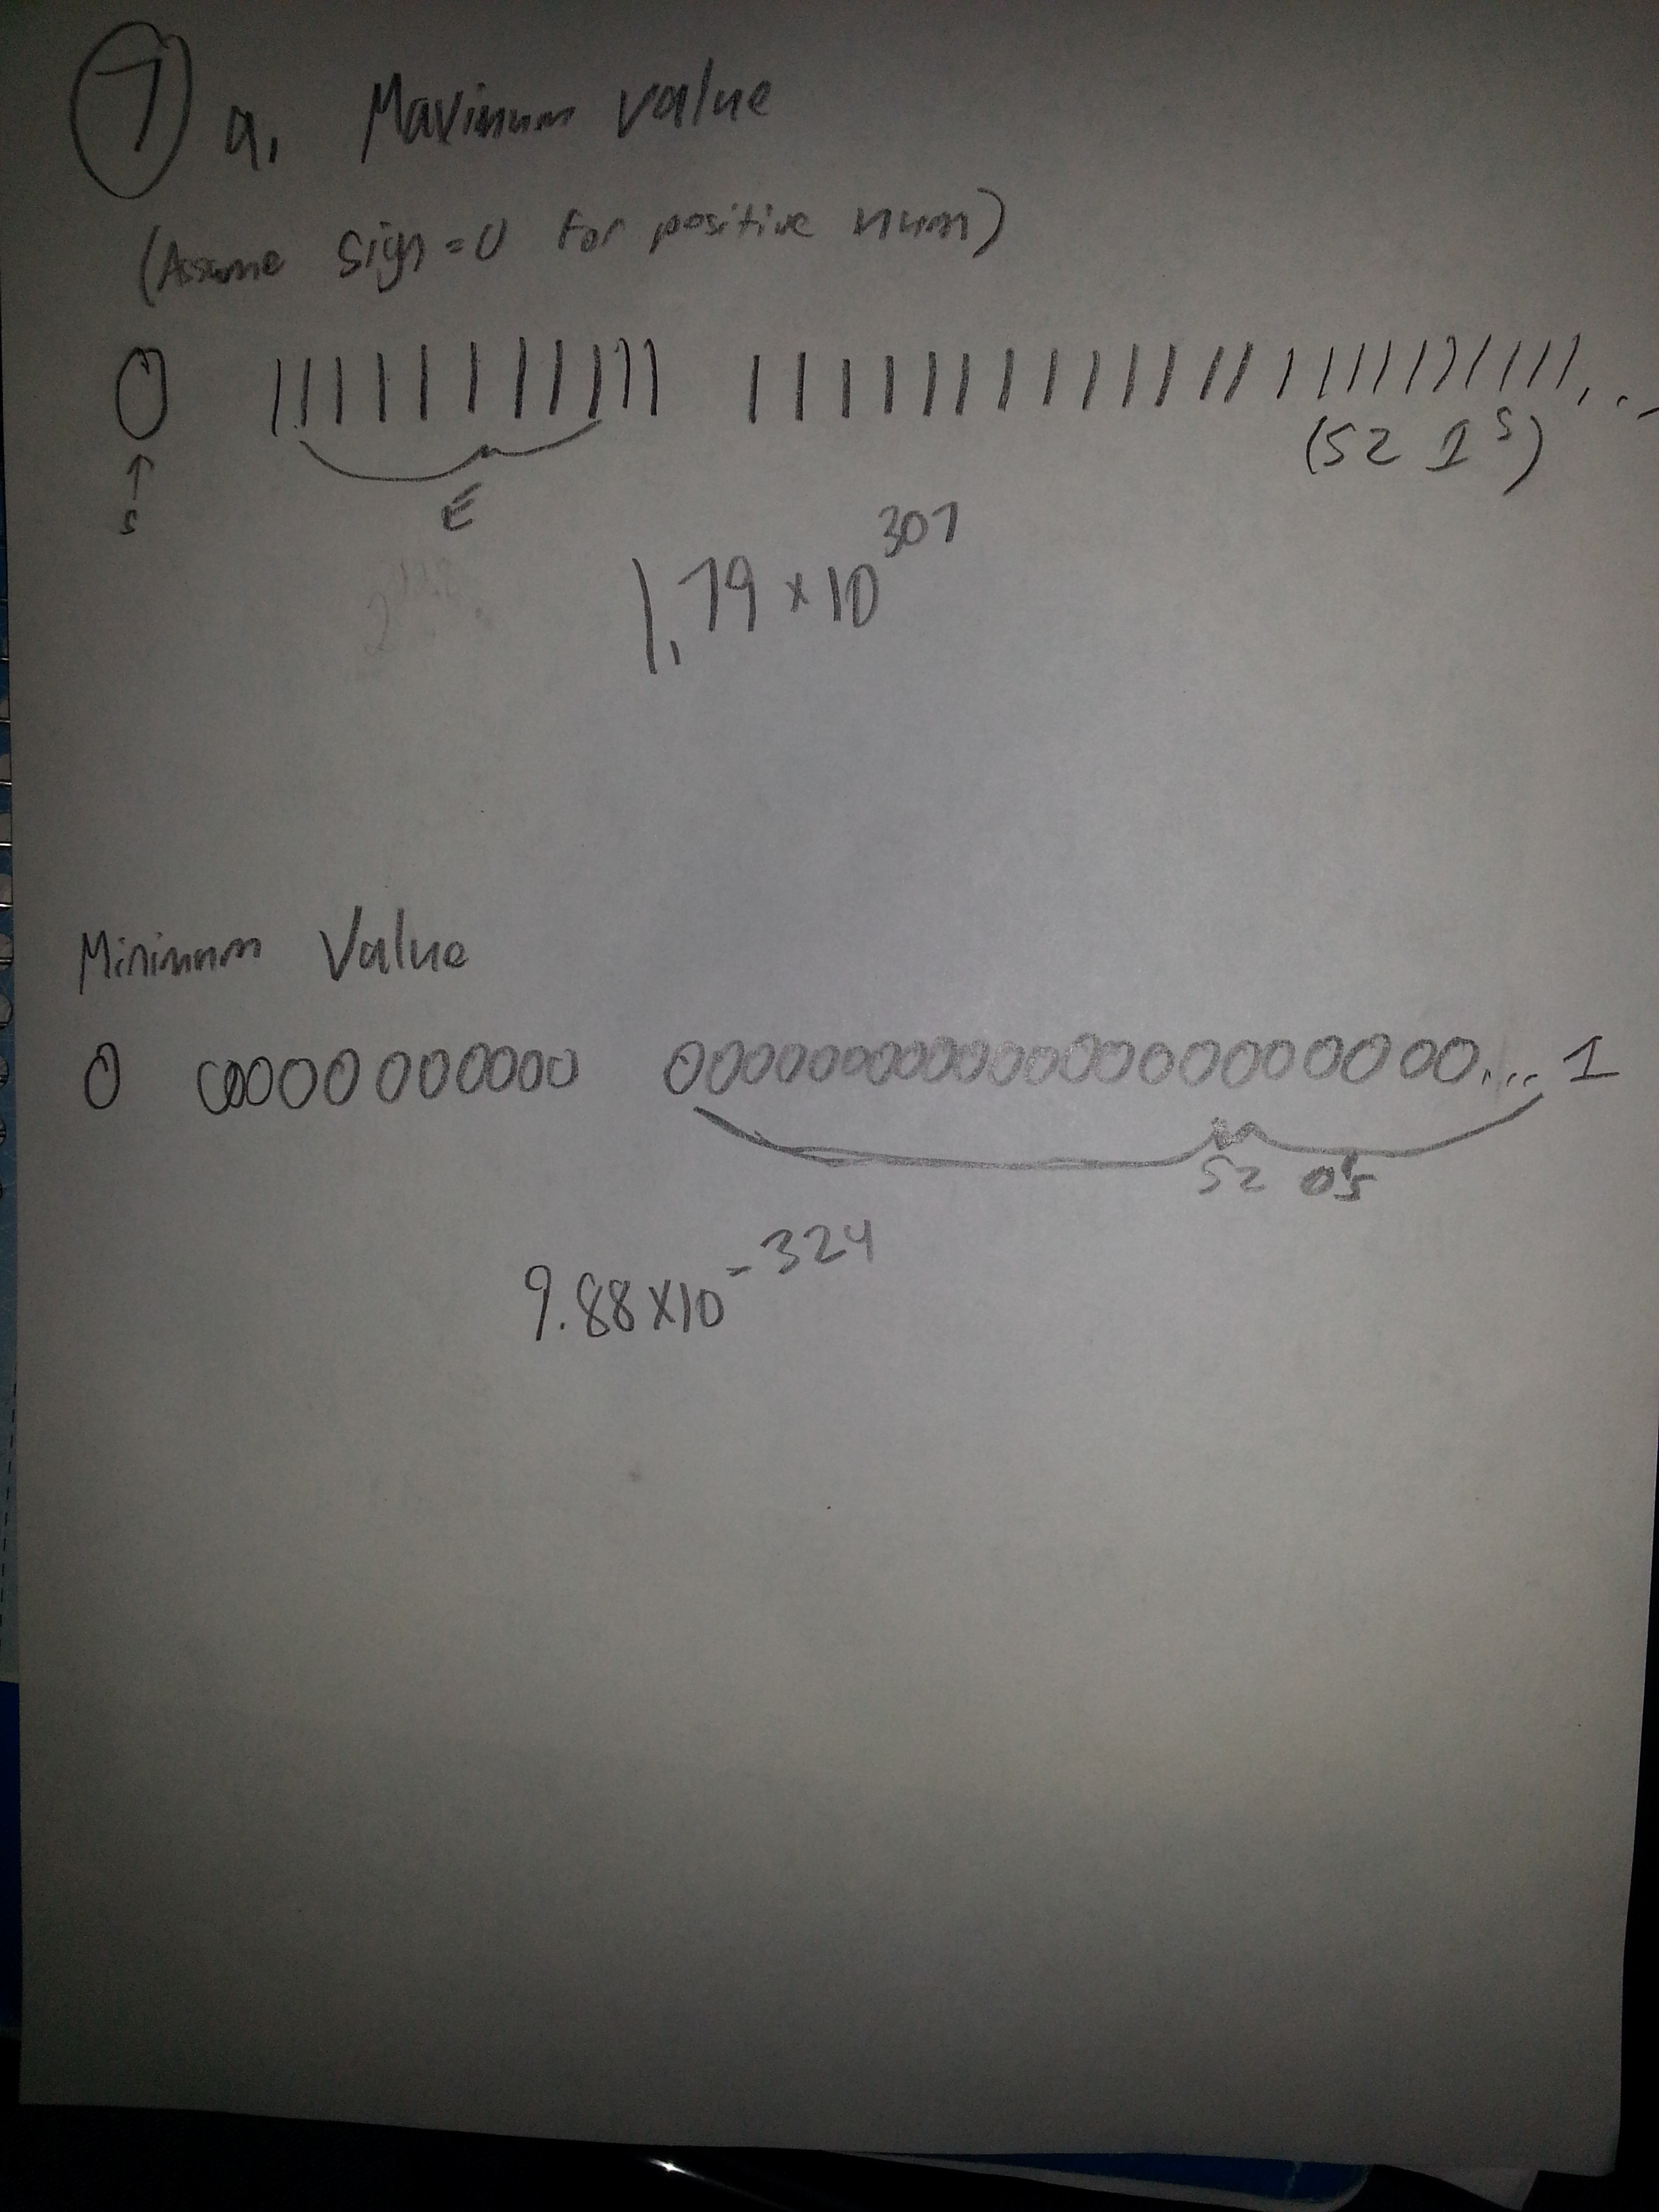 7 a. Maximum value
(Assume Sign=0 for positive num)
0 11111111111 111111111111111111111111...
(52 1s)
↑
s E
1.79 × 10^307
Minimum Value
0 00000000000 0000000000000000000000.... 1
52 0's
9.88×10^-324